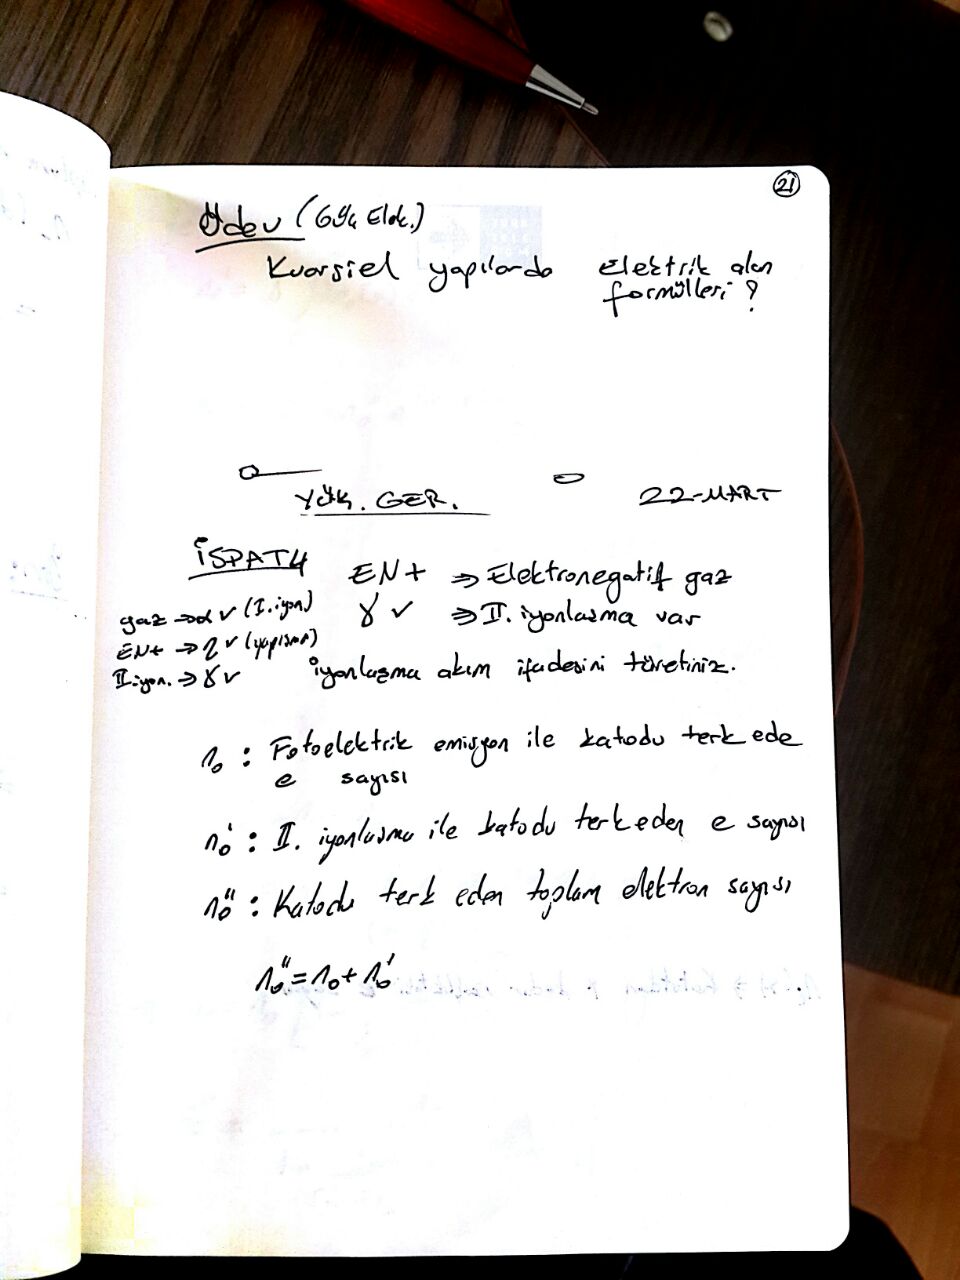 21
Ödev (Güç Elek.)
Kuarsiel yapılarda elektrik alan
formülleri?
YÜK. GER. 22-MART
İSPAT4 EN+ ⇒ Elektronegatif gaz
gaz → α ✓ (I. iyon) γ ✓ ⇒ II. iyonlaşma var
EN+ → η ✓ (yapışma)
II. iyon. → γ ✓ iyonlaşma akım ifadesini türetiniz.
n₀ : Fotoelektrik emisyon ile katodu terk ede
e sayısı
n₀' : II. iyonlaşma ile katodu terk eden e sayısı
n₀'' : Katodu terk eden toplam elektron sayısı
n₀'' = n₀ + n₀'